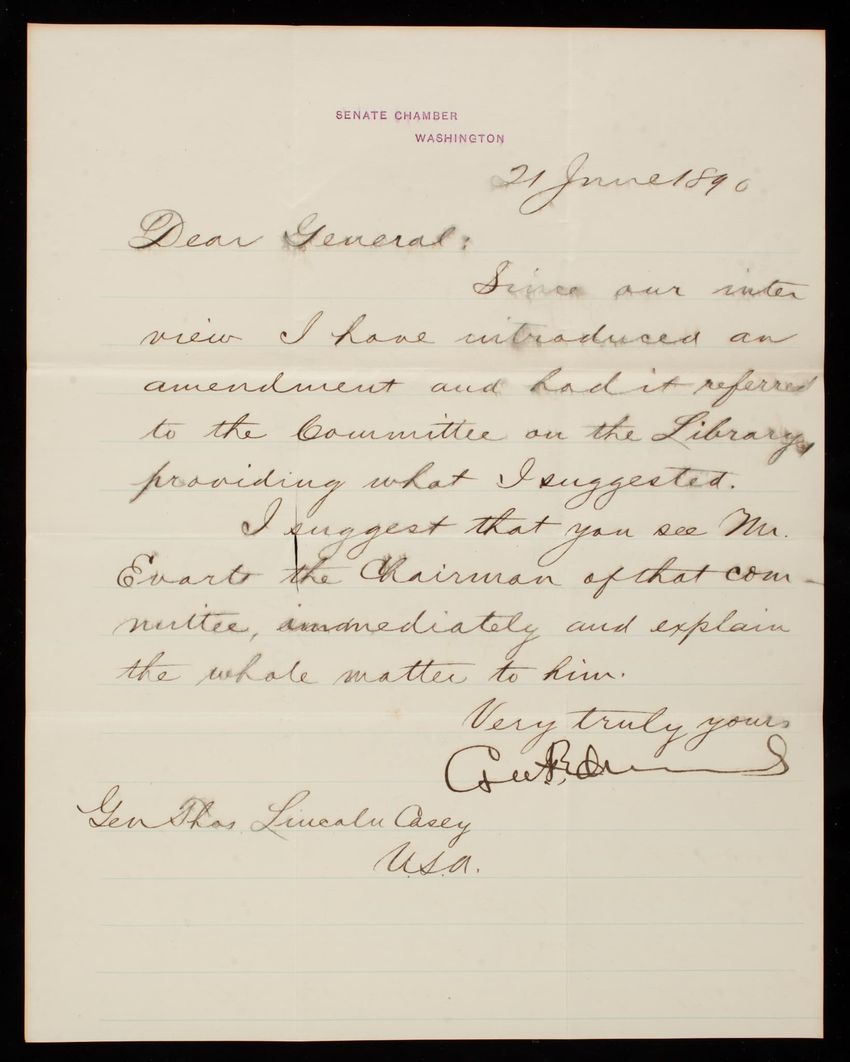 SENATE CHAMBER
WASHINGTON
21 June 1890
Dear General:
Since our inter
view I have introduced an
amendment and had it referred
to the Committee on the Library,
providing what I suggested.
I suggest that you see Mr.
Evarts the Chairman of that com-
mittee, immediately and explain
the whole matter to him.
Very truly yours
Geo F. Edmunds
Gen Thos. Lincoln Casey
U.S.A.